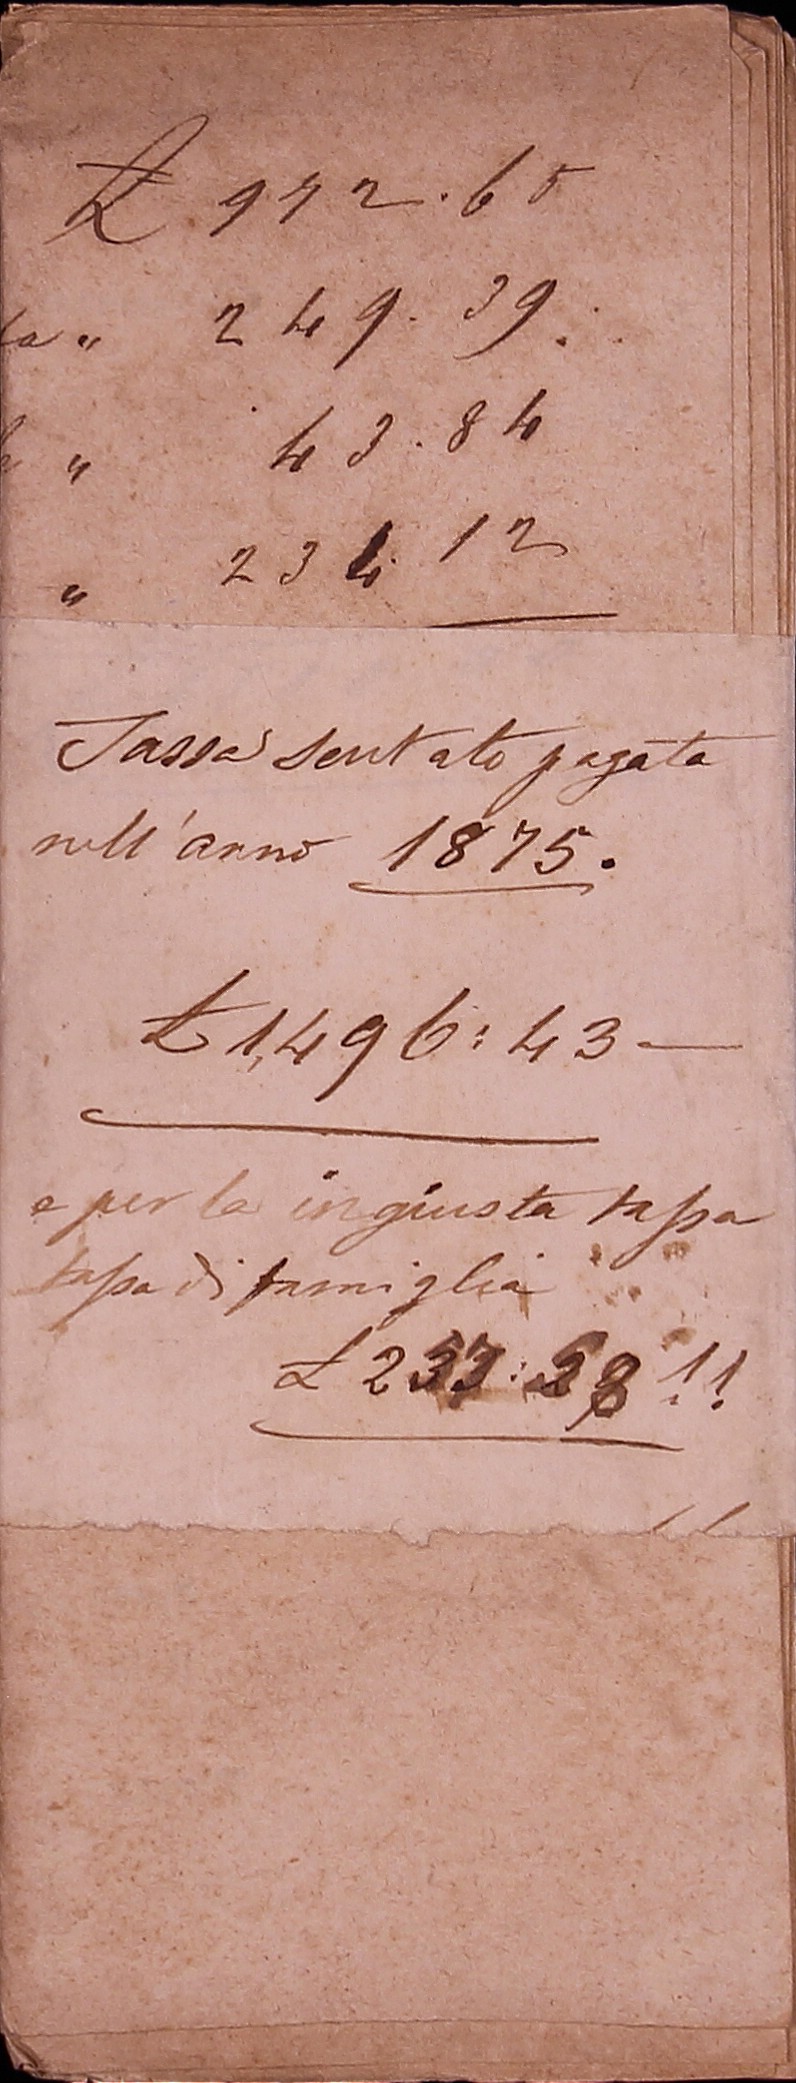 £ 972.60
ta " 249.39.
" 43.84
" 234.12
Tassa pagata
nell'anno 1875.
£ 1,496:43 —
e per la ingiusta tassa
tassa di famiglia
£ 253:58 !!